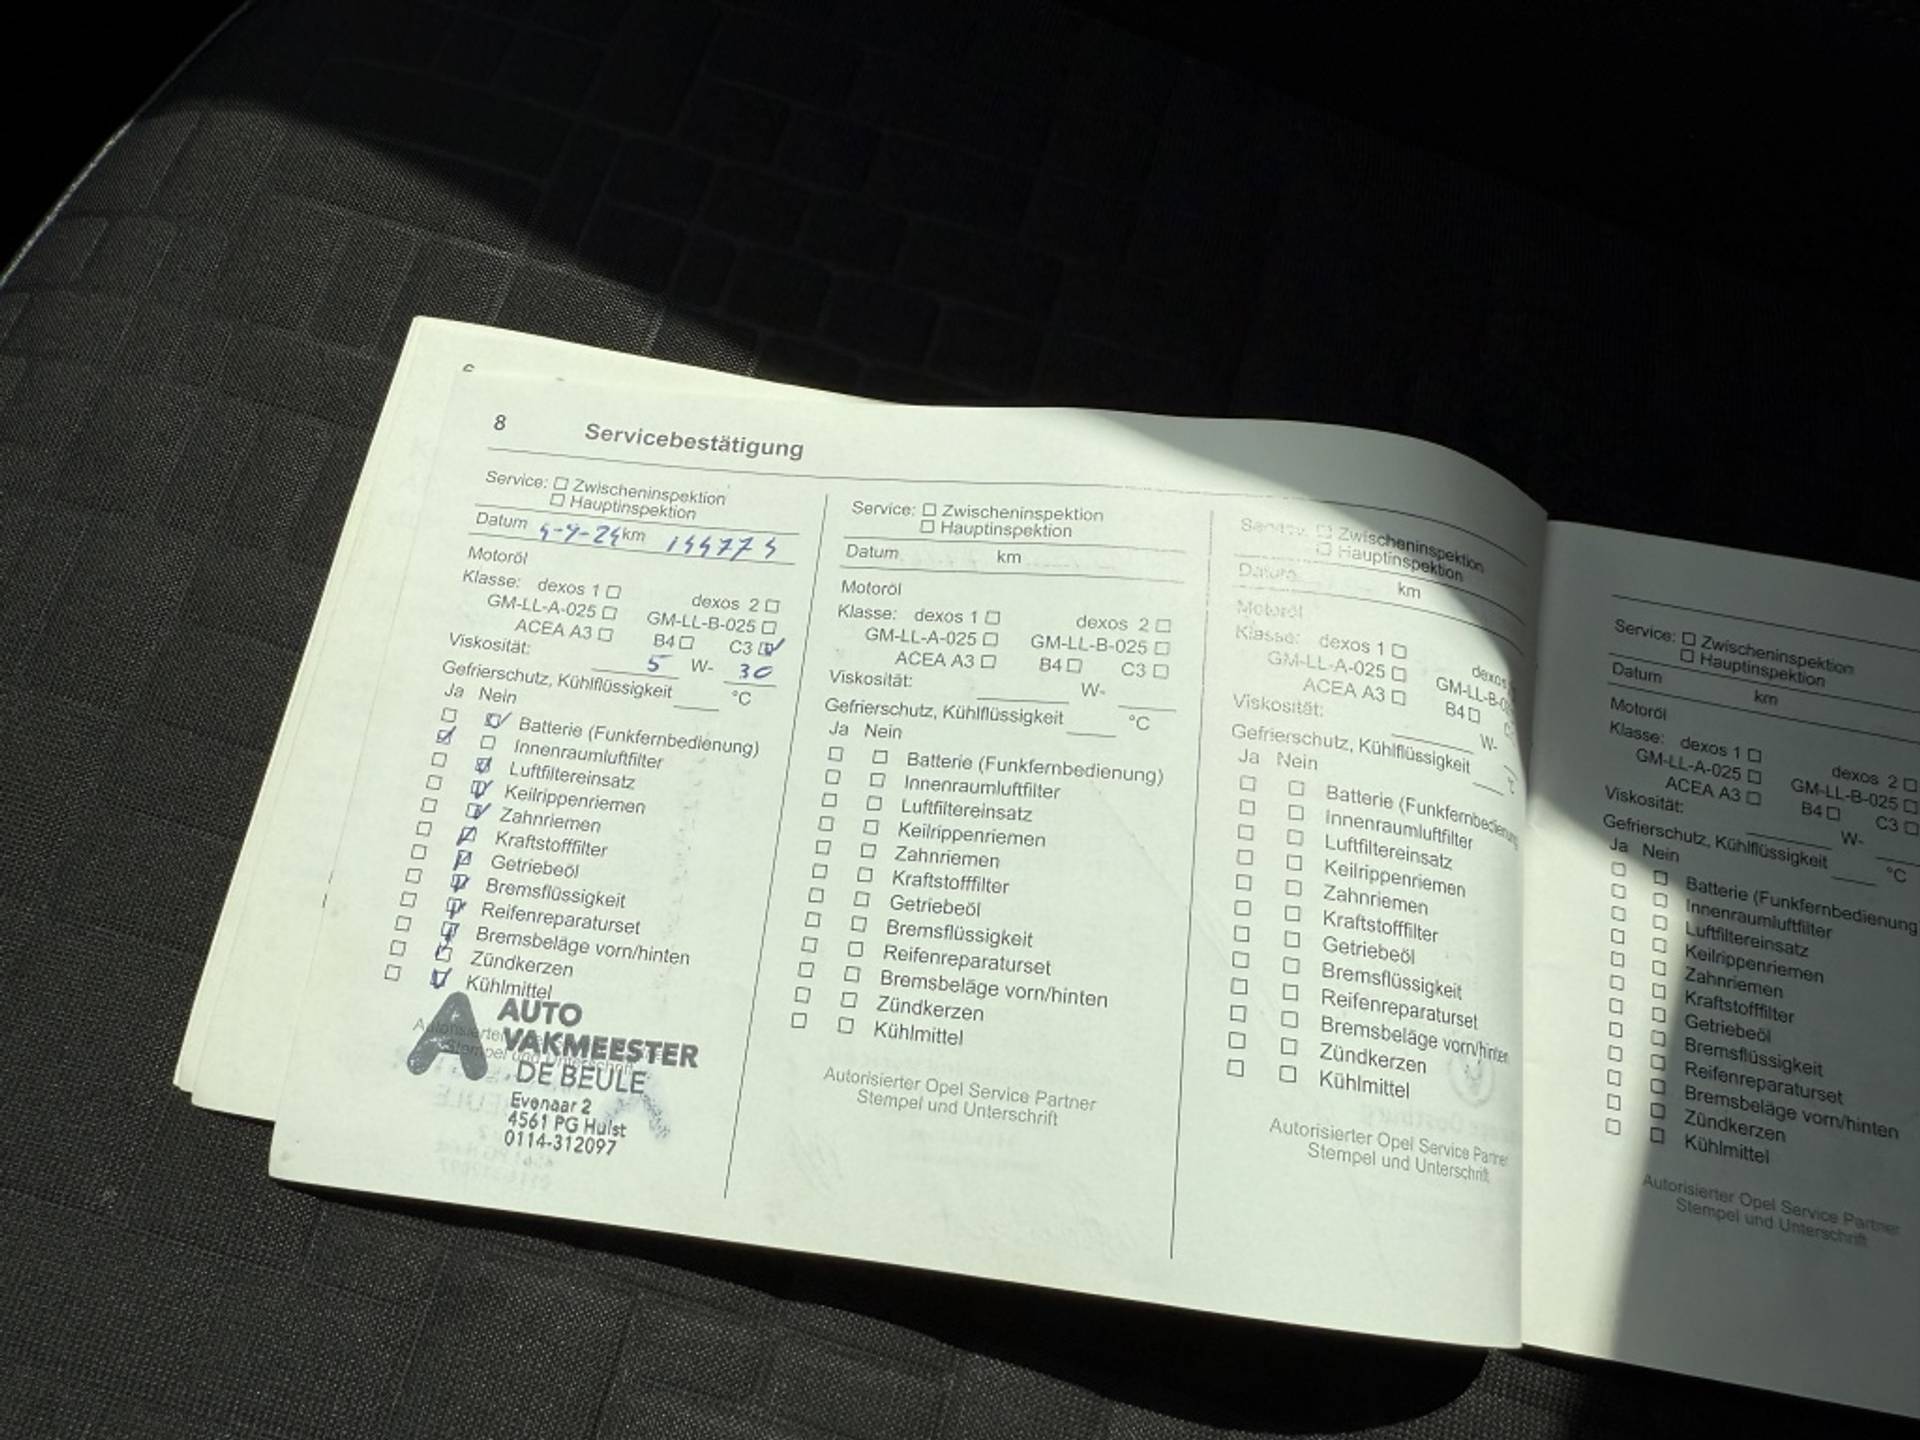 8 Servicebestätigung
Service: Zwischeninspektion
Hauptinspektion
Datum km
Motoröl
Klasse: dexos 1 dexos 2
GM-LL-A-025 GM-LL-B-025
ACEA A3 B4 C3
Viskosität: 5 W- 30
Gefrierschutz, Kühlflüssigkeit °C
Ja Nein
Batterie (Funkfernbedienung)
Innenraumluftfilter
Luftfiltereinsatz
Keilrippenriemen
Zahnriemen
Kraftstofffilter
Getriebeöl
Bremsflüssigkeit
Reifenreparaturset
Bremsbeläge vorn/hinten
Zündkerzen
Kühlmittel
Autorisierter
Stempel und Unterschrift
A AUTO
VAKMEESTER
DE BEULE
Evenaar 2
4561 PG Hulst
0114-312097
Service: Zwischeninspektion
Hauptinspektion
Datum km
Motoröl
Klasse: dexos 1 dexos 2
GM-LL-A-025 GM-LL-B-025
ACEA A3 B4 C3
Viskosität: W-
Gefrierschutz, Kühlflüssigkeit °C
Ja Nein
Batterie (Funkfernbedienung)
Innenraumluftfilter
Luftfiltereinsatz
Keilrippenriemen
Zahnriemen
Kraftstofffilter
Getriebeöl
Bremsflüssigkeit
Reifenreparaturset
Bremsbeläge vorn/hinten
Zündkerzen
Kühlmittel
Autorisierter Opel Service Partner
Stempel und Unterschrift
Zwischeninspektion
Hauptinspektion
Datum km
Motoröl
Klasse: dexos 1 dexos
GM-LL-A-025 GM-LL-B-0
ACEA A3 B4
Viskosität: W-
Gefrierschutz, Kühlflüssigkeit
Ja Nein
Batterie (Funkfernbedienung
Innenraumluftfilter
Luftfiltereinsatz
Keilrippenriemen
Zahnriemen
Kraftstofffilter
Getriebeöl
Bremsflüssigkeit
Reifenreparaturset
Bremsbeläge vorn/hinten
Zündkerzen
Kühlmittel
Autorisierter Opel Service Partner
Stempel und Unterschrift
Service: Zwischeninspektion
Hauptinspektion
Datum km
Motoröl
Klasse: dexos 1 dexos 2
GM-LL-A-025 GM-LL-B-025
ACEA A3 B4 C3
Viskosität: W-
Gefrierschutz, Kühlflüssigkeit °C
Ja Nein
Batterie (Funkfernbedienung
Innenraumluftfilter
Luftfiltereinsatz
Keilrippenriemen
Zahnriemen
Kraftstofffilter
Getriebeöl
Bremsflüssigkeit
Reifenreparaturset
Bremsbeläge vorn/hinten
Zündkerzen
Kühlmittel
Autorisierter Opel Service Partner
Stempel und Unterschrift